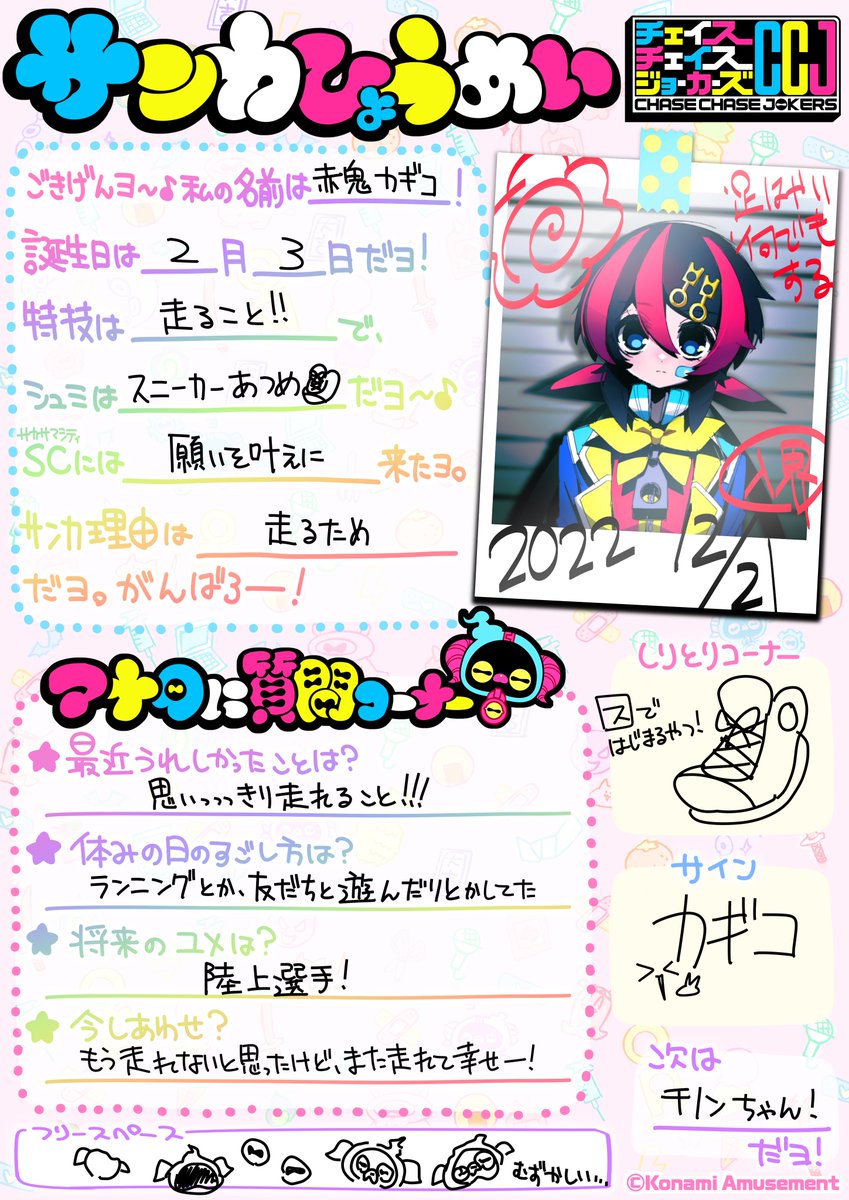 サンカひょうめい
チェイス
チェイス
ジョーカーズ
CCJ
CHASE CHASE JOKERS
ごきげんヨ〜♪私の名前は赤鬼カギコ！
誕生日は2月3日だヨ！
特技は走ること!!で、
シュミはスニーカーあつめだヨ〜♪
サカサマシティ
SCには願いを叶えに来たヨ。
サンカ理由は走るため
だヨ。がんばろー！
足はやい
何でも
する
入界
2022 12/21
アナタに質問コーナー
★最近うれしかったことは？
思いっっっきり走れること!!!
★休みの日のすごし方は？
ランニングとか、友だちと遊んだりとかしてた
★将来のユメは？
陸上選手！
★今しあわせ？
もう走れないと思ったけど、また走れて幸せー！
しりとりコーナー
スで
はじまるやつ！
サイン
カギコ
次は
チノンちゃん！
だヨ！
フリースペース
むずかしい…
©Konami Amusement